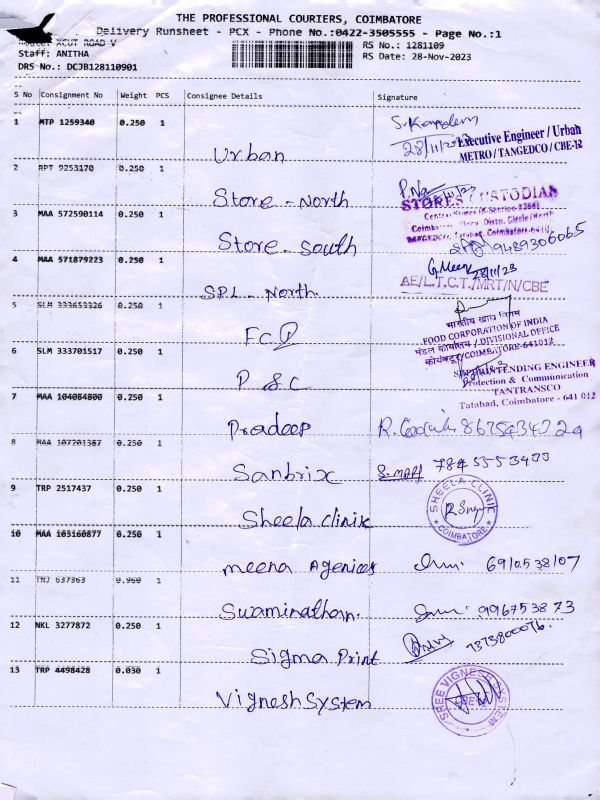 THE PROFESSIONAL COURIERS, COIMBATORE
Delivery Runsheet - PCX - Phone No.:0422-3505555 - Page No.:1
Route: XCUT ROAD V
Staff: ANITHA
DRS No.: DCJB128110901
RS No.: 1281109
RS Date: 28-Nov-2023
S No Consignment No Weight PCS Consignee Details Signature
1 MTP 1259340 0.250 1 Urban
28/11/23
Executive Engineer / Urban
METRO / TANGEDCO / CBE-12
2 RPT 9253170 0.250 1 Store - North
STORES CUSTODIAN
3 MAA 572590114 0.250 1 Store - South
9489306065
4 MAA 571879223 0.250 1 SPL - North.
28/11/23
AE/L.T.C.T./MRT/N/CBE
5 SLM 333653326 0.250 1 FCI
भारतीय खाद्य निगम
FOOD CORPORATION OF INDIA
मंडल कार्यालय / DIVISIONAL OFFICE
कोयंबटूर/COIMBATORE-641012
6 SLM 333701517 0.250 1 P & C
SUPERINTENDING ENGINEER
Protection & Communication
TANTRANSCO
Tatabad, Coimbatore - 641 012
7 MAA 104084800 0.250 1 Pradeep
8 MAA 107201387 0.250 1 Sanbrix
9 TRP 2517437 0.250 1 Sheela clinik
SHEELA CLINIC
COIMBATORE
10 MAA 103160877 0.250 1 meena Agenices
6910538107
11 TNJ 637363 0.960 1 Swaminathan.
996753873
12 NKL 3277872 0.250 1 Sigma Print
7373800076.
13 TRP 4498428 0.030 1 Vignesh System
SREE VIGNESH SYSTEM